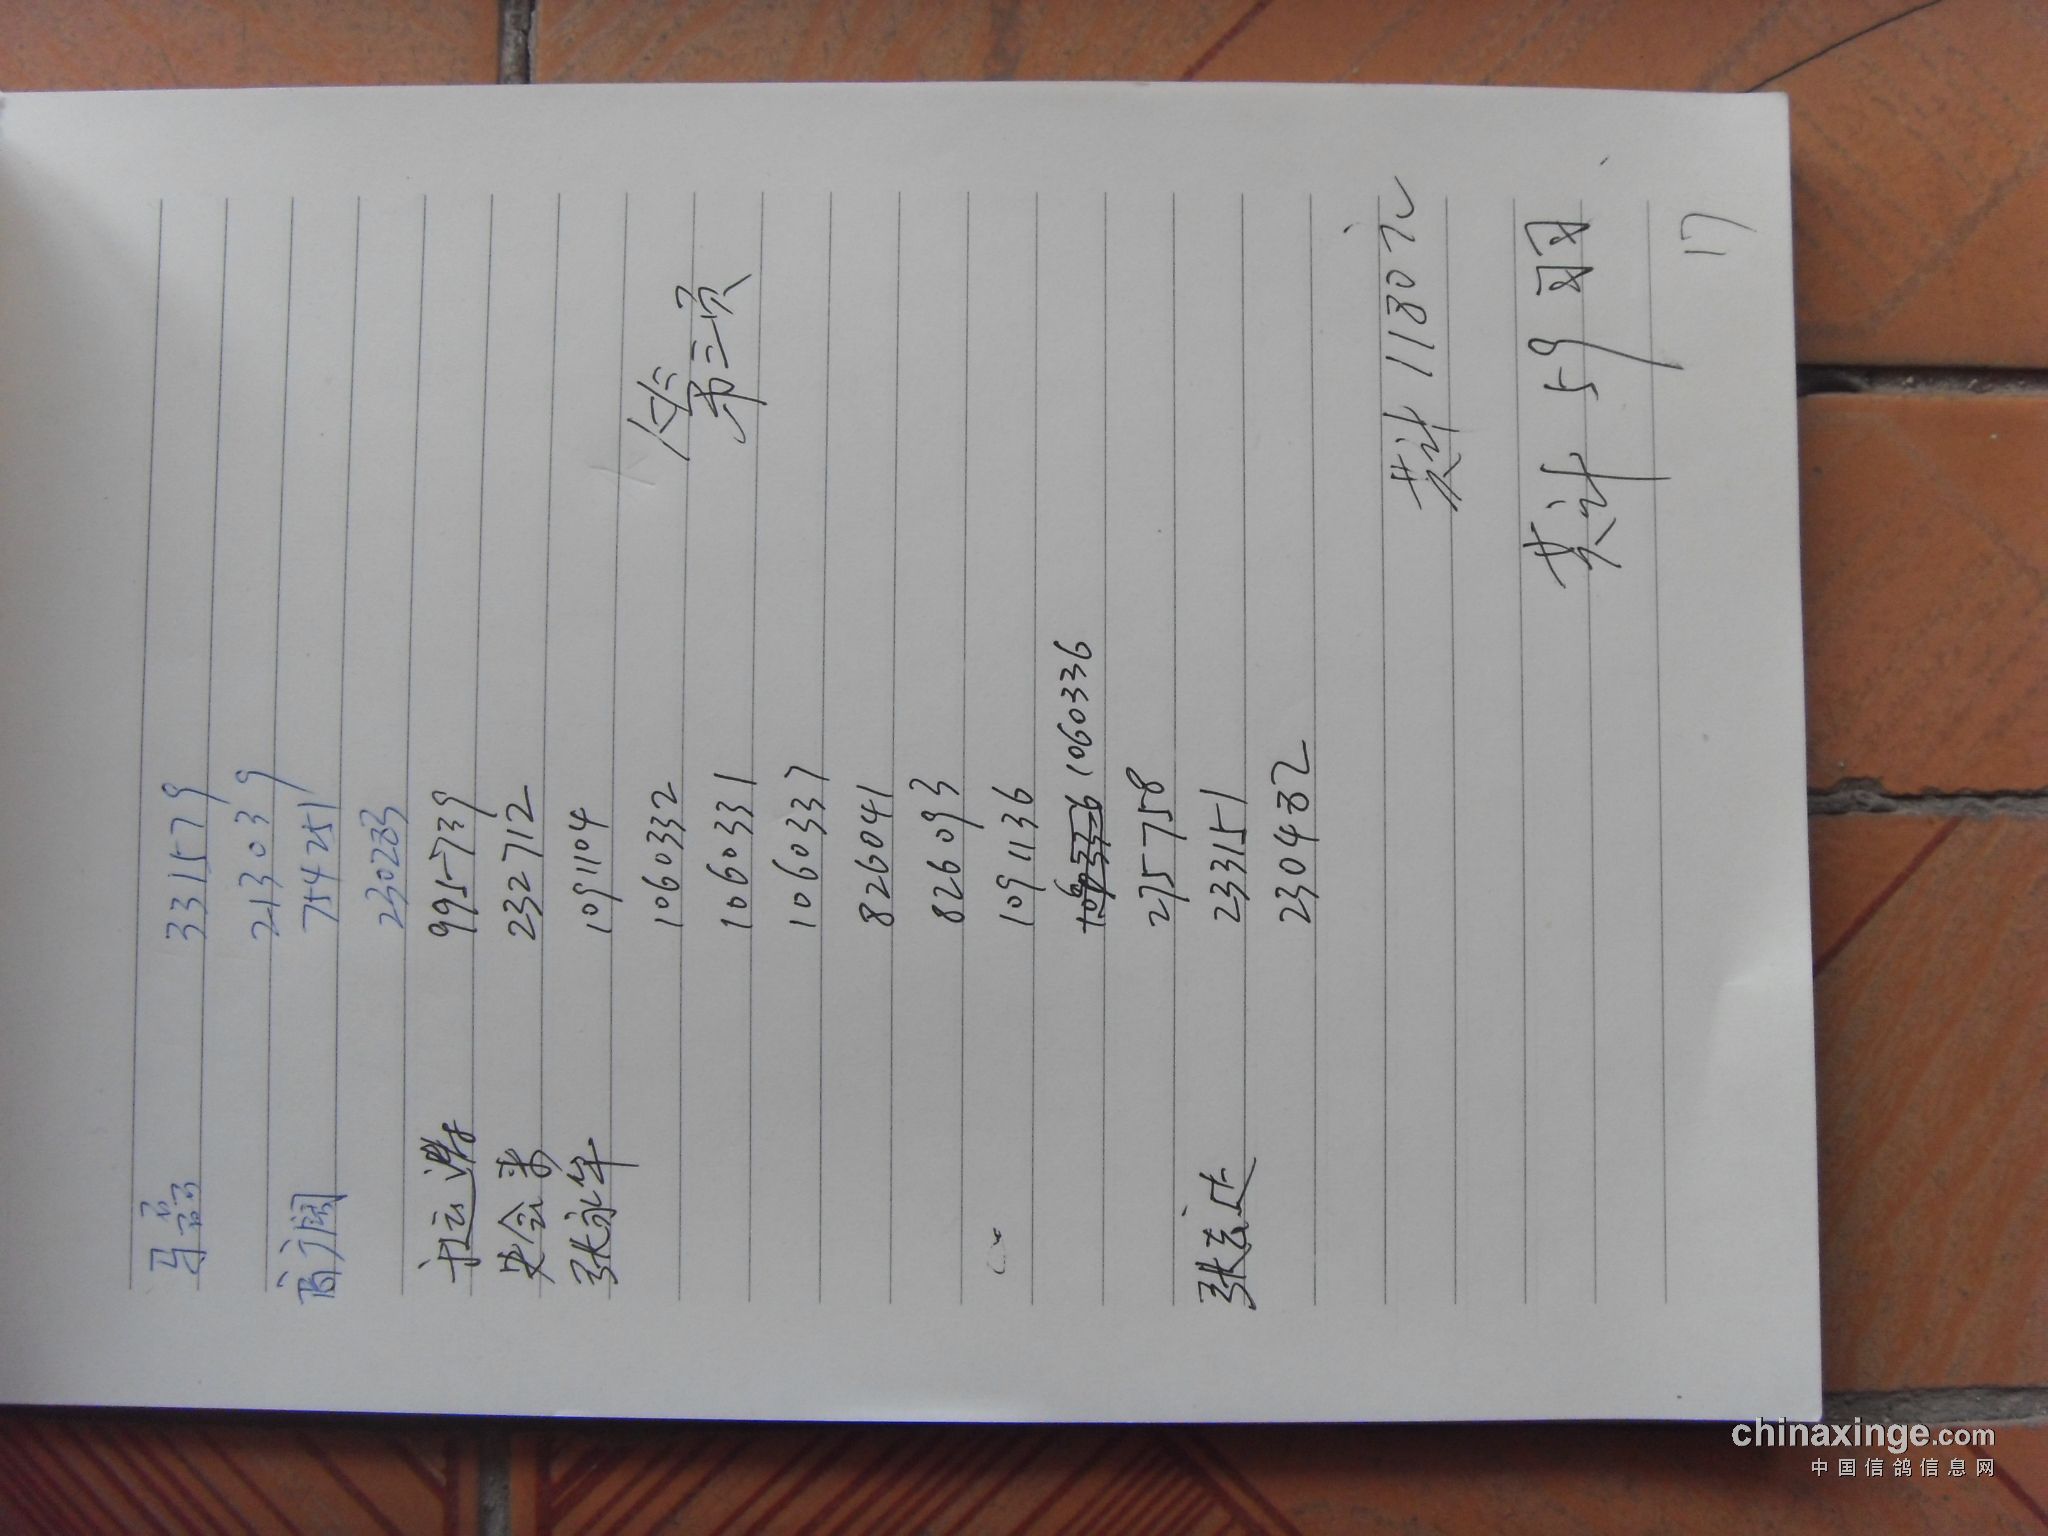 马磊 331579
213039
商润 754251
230233
995739
232712
张永年 1091104
1060332
第三页
1060331
1060337
826041
826093
1091136
1060336
275758
张 233151
230432
共计 1180元
共计 59羽
17
chinaxinge.com
中国信鸽信息网